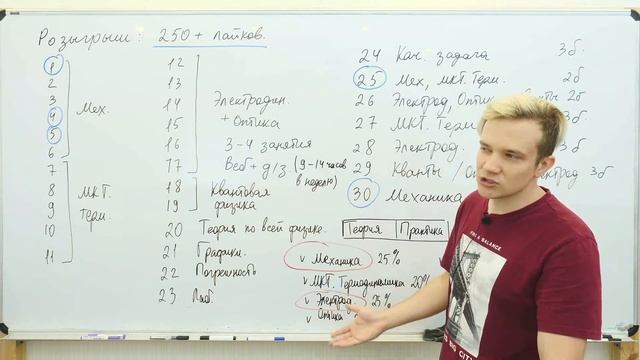 Розыгрыш: 250+ лайков.
1
2
3
4
5
6
Мех.
7
8
9
10
11
МКТ.
Терм.
12
13
14
15
16
17
Электродин.
+ Оптика
3-4 занятия
Веб + д/з. (9-14 часов
в неделю)
18
19
Квантовая
физика
20 Теория по всей физике.
21 Графики.
22 Погрешность
23 Лаб.
24 Кач. задача 3б
25 Мех, МКТ. Терм. 2б
26 Электрод, Опти 2б
27 МКТ. Терм 3б
28 Электрод.
29 Кванты / О электрод 3б
30 Механика
Теория Практика
v Механика 25%
v МКТ. Термодинамика 20%
v Электрод. 25%
v Оптика
FIND A BALANCE
BIG CITI